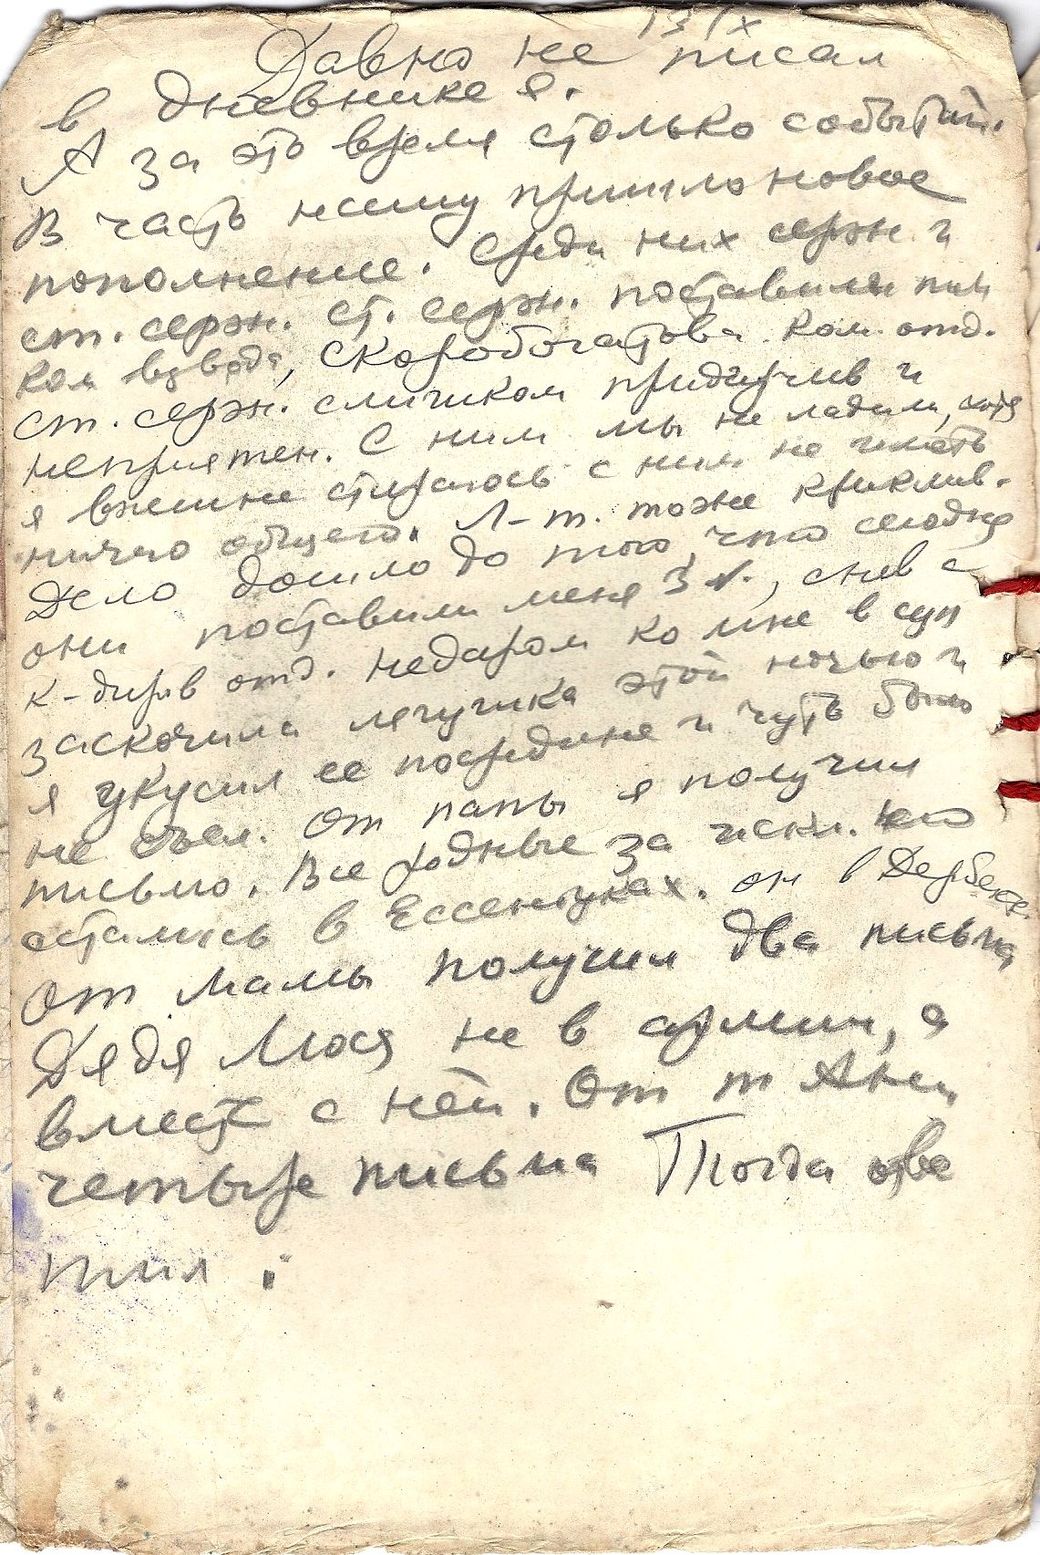 13/IX
Давно не писал
в дневнике я.
А за это время столько событий.
В часть нашу пришло новое
пополнение. Среди них сержн. и
ст. сержн. Ст. сержн. поставили
ком взвода, Скоробогатова ком. отд.
ст. сержн. слишком придирчив и
неприятен. С ним мы не ладим, хотя
я внешне стараюсь с ним не иметь
ничего общего. Л-т. тоже криклив.
Дело дошло до того, что сегодня
они поставили меня 3 №., сняв с
к-диров отд. Недаром ко мне в суп
заскочила лягушка этой ночью и
я укусил ее посредине и чуть было
не съел. От папы я получил
письмо. Все родные за искл. его
остались в Ессентуках. Он в Дербенте.
От мамы получил два письма
Дядя Люся не в армии, а
вместе с ней. От т Ани
четыре письма Тогда отве
тил.